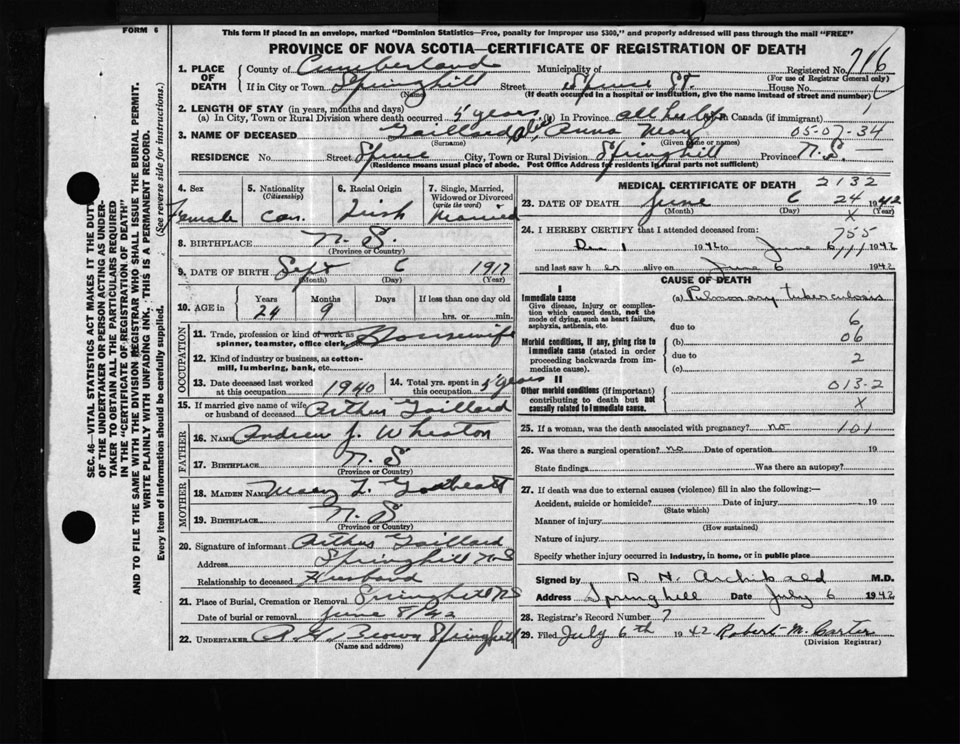 FORM 6
This form if placed in an envelope, marked "Dominion Statistics—Free, penalty for improper use $300," and properly addressed will pass through the mail "FREE"
PROVINCE OF NOVA SCOTIA—CERTIFICATE OF REGISTRATION OF DEATH
Registered No. 716
(For use of Registrar General only)
1. PLACE OF DEATH
County of Cumberland Municipality of
If in City or Town Springhill Street Spruce St. House No.
(Name) (If death occurred in a hospital or institution, give the name instead of street and number)
2. LENGTH OF STAY (in years, months and days)
(a) In City, Town or Rural Division where death occurred 5 years (b) In Province all her life (c) In Canada (if immigrant)
3. NAME OF DECEASED Gaillard Anna May 05-07-34
(Surname) (Given name or names)
RESIDENCE No. Street Spruce City, Town or Rural Division Springhill Province N.S.
(Residence means usual place of abode. Post Office Address for residents in rural parts not sufficient)
4. Sex Female
5. Nationality (Citizenship) Can.
6. Racial Origin Irish
7. Single, Married, Widowed or Divorced (write the word) Married
8. BIRTHPLACE N. S.
(Province or Country)
9. DATE OF BIRTH Sept 6 1917
(Month) (Day) (Year)
10. AGE in Years 24 Months 9 Days If less than one day old hrs. or min.
OCCUPATION
11. Trade, profession or kind of work as spinner, teamster, office clerk, Housewife
12. Kind of industry or business, as cotton-mill, lumbering, bank, etc.
13. Date deceased last worked at this occupation 1940
14. Total yrs. spent in this occupation 5 years
15. If married give name of wife or husband of deceased Arthur Gaillard
FATHER
16. NAME Andrew J. Wheaton
17. BIRTHPLACE N. S
(Province or Country)
MOTHER
18. MAIDEN NAME
19. BIRTHPLACE N. S
(Province or Country)
20. Signature of informant Arthur Gaillard
Address Springhill N S
Relationship to deceased Husband
21. Place of Burial, Cremation or Removal Springhill N S
Date of burial or removal June 8/42
22. UNDERTAKER Brown Springhill
(Name and address)
MEDICAL CERTIFICATE OF DEATH 2132
23. DATE OF DEATH June 6 24 1942
(Month) (Day) X (Year)
24. I HEREBY CERTIFY that I attended deceased from: 755
Dec 1 1941 to June 6, 111 1942
and last saw her alive on June 6 1942
CAUSE OF DEATH
I
Immediate cause (a) Pulmonary tuberculosis
Give disease, injury or complication which caused death, not the mode of dying, such as heart failure, asphyxia, asthenia, etc.
due to 6
Morbid conditions, if any, giving rise to immediate cause (stated in order proceeding backwards from immediate cause).
(b) 06
due to 2
(c)
II
Other morbid conditions (if important) contributing to death but not causally related to immediate cause.
013-2
X
25. If a woman, was the death associated with pregnancy? no 101
26. Was there a surgical operation? no Date of operation 19
State findings Was there an autopsy?
27. If death was due to external causes (violence) fill in also the following:—
Accident, suicide or homicide? Date of injury 19
(State which)
Manner of injury
(How sustained)
Nature of injury
Specify whether injury occurred in industry, in home, or in public place
Signed by D. H. Archibald M.D.
Address Springhill Date July 6 1942
28. Registrar's Record Number 7
29. Filed July 6th 1942 Robert M. Carter
(Division Registrar)
SEC. 46—VITAL STATISTICS ACT MAKES IT THE DUTY
OF THE UNDERTAKER OR PERSON ACTING AS UNDER-
TAKER TO OBTAIN ALL THE PARTICULARS REQUIRED
IN THE "CERTIFICATE OF REGISTRATION OF DEATH"
AND TO FILE THE SAME WITH THE DIVISION REGISTRAR WHO SHALL ISSUE THE BURIAL PERMIT.
WRITE PLAINLY WITH UNFADING INK. THIS IS A PERMANENT RECORD.
Every item of information should be carefully supplied. (See reverse side for instructions.)